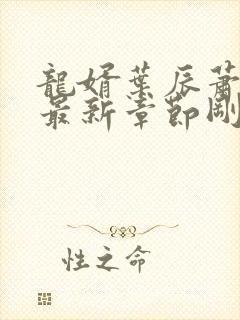 龍婿葉辰蕭
最新章節剛
性之命